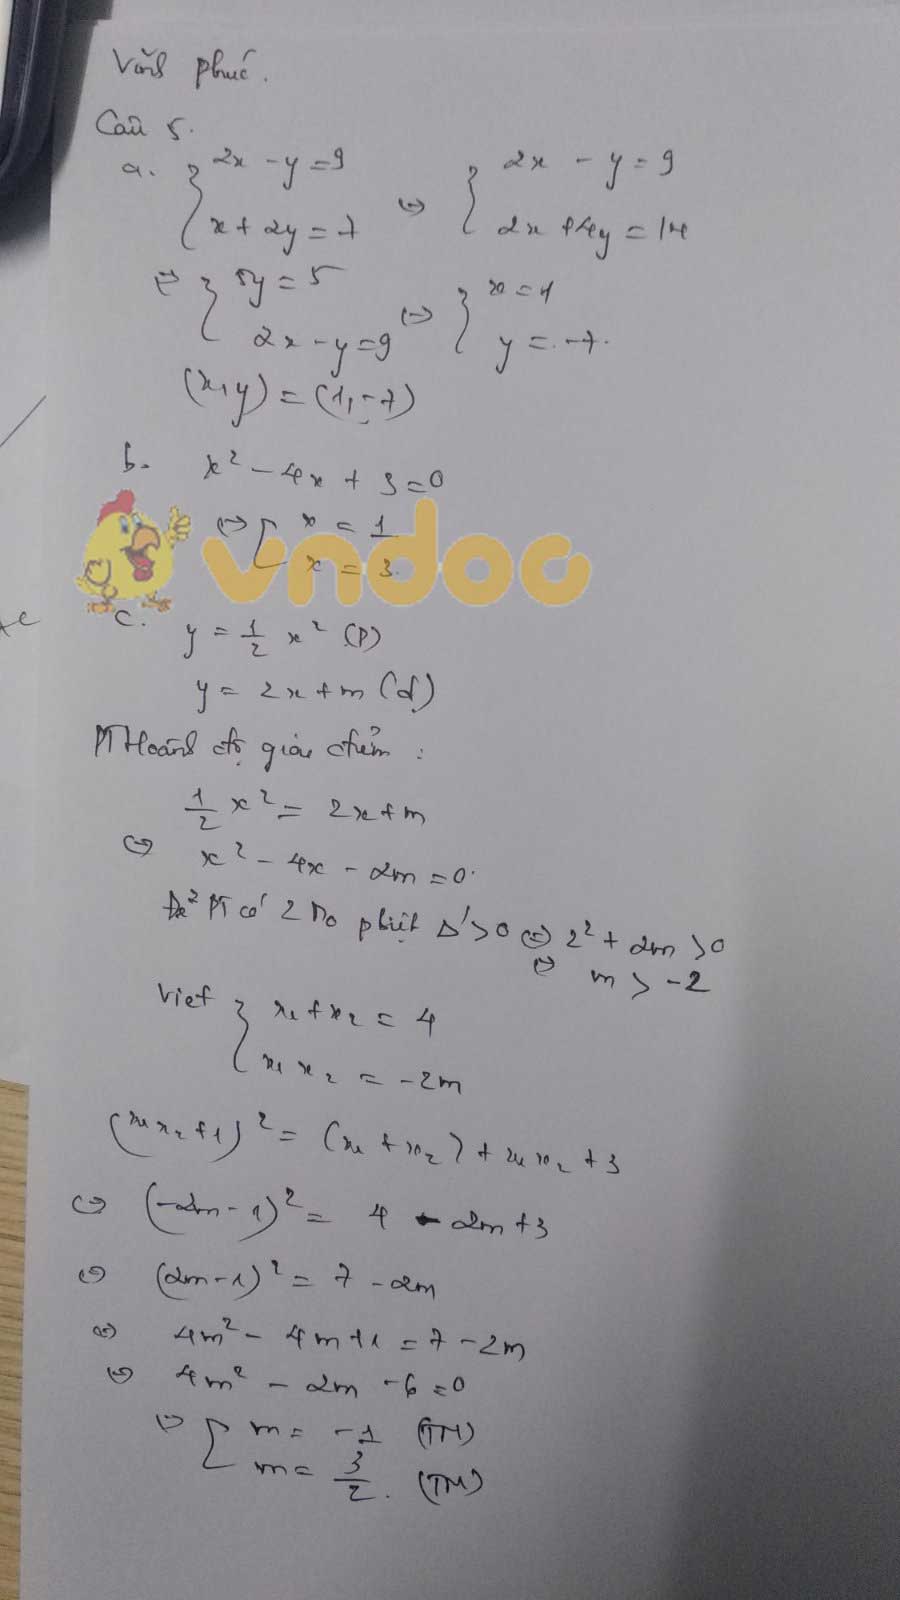 Vĩnh phúc.
Câu 5.
a. { 2x - y = 9 ⇔ { 2x - y = 9
x + 2y = 7 2x + 4y = 14
⇔ { 5y = 5 ⇔ { x = 1
2x - y = 9 y = -7.
(x, y) = (1, -7)
b. x² - 4x + 3 = 0
⇔ [ x = 1
x = 3.
vndoc
c. y = 1/2 x² (P)
y = 2x + m (d)
PT Hoành độ giao điểm :
1/2 x² = 2x + m
⇔ x² - 4x - 2m = 0.
Để PT có 2 No pbiệt Δ' > 0 ⇔ 2² + 2m > 0
⇔ m > -2
Viet { x₁ + x₂ = 4
x₁ x₂ = -2m
(x₁x₂ + 1)² = (x₁ + x₂) + x₁x₂ + 3
⇔ (-2m - 1)² = 4 - 2m + 3
⇔ (2m - 1)² = 7 - 2m
⇔ 4m² - 4m + 1 = 7 - 2m
⇔ 4m² - 2m - 6 = 0
⇔ [ m = -1 (TM)
m = 3/2. (TM)